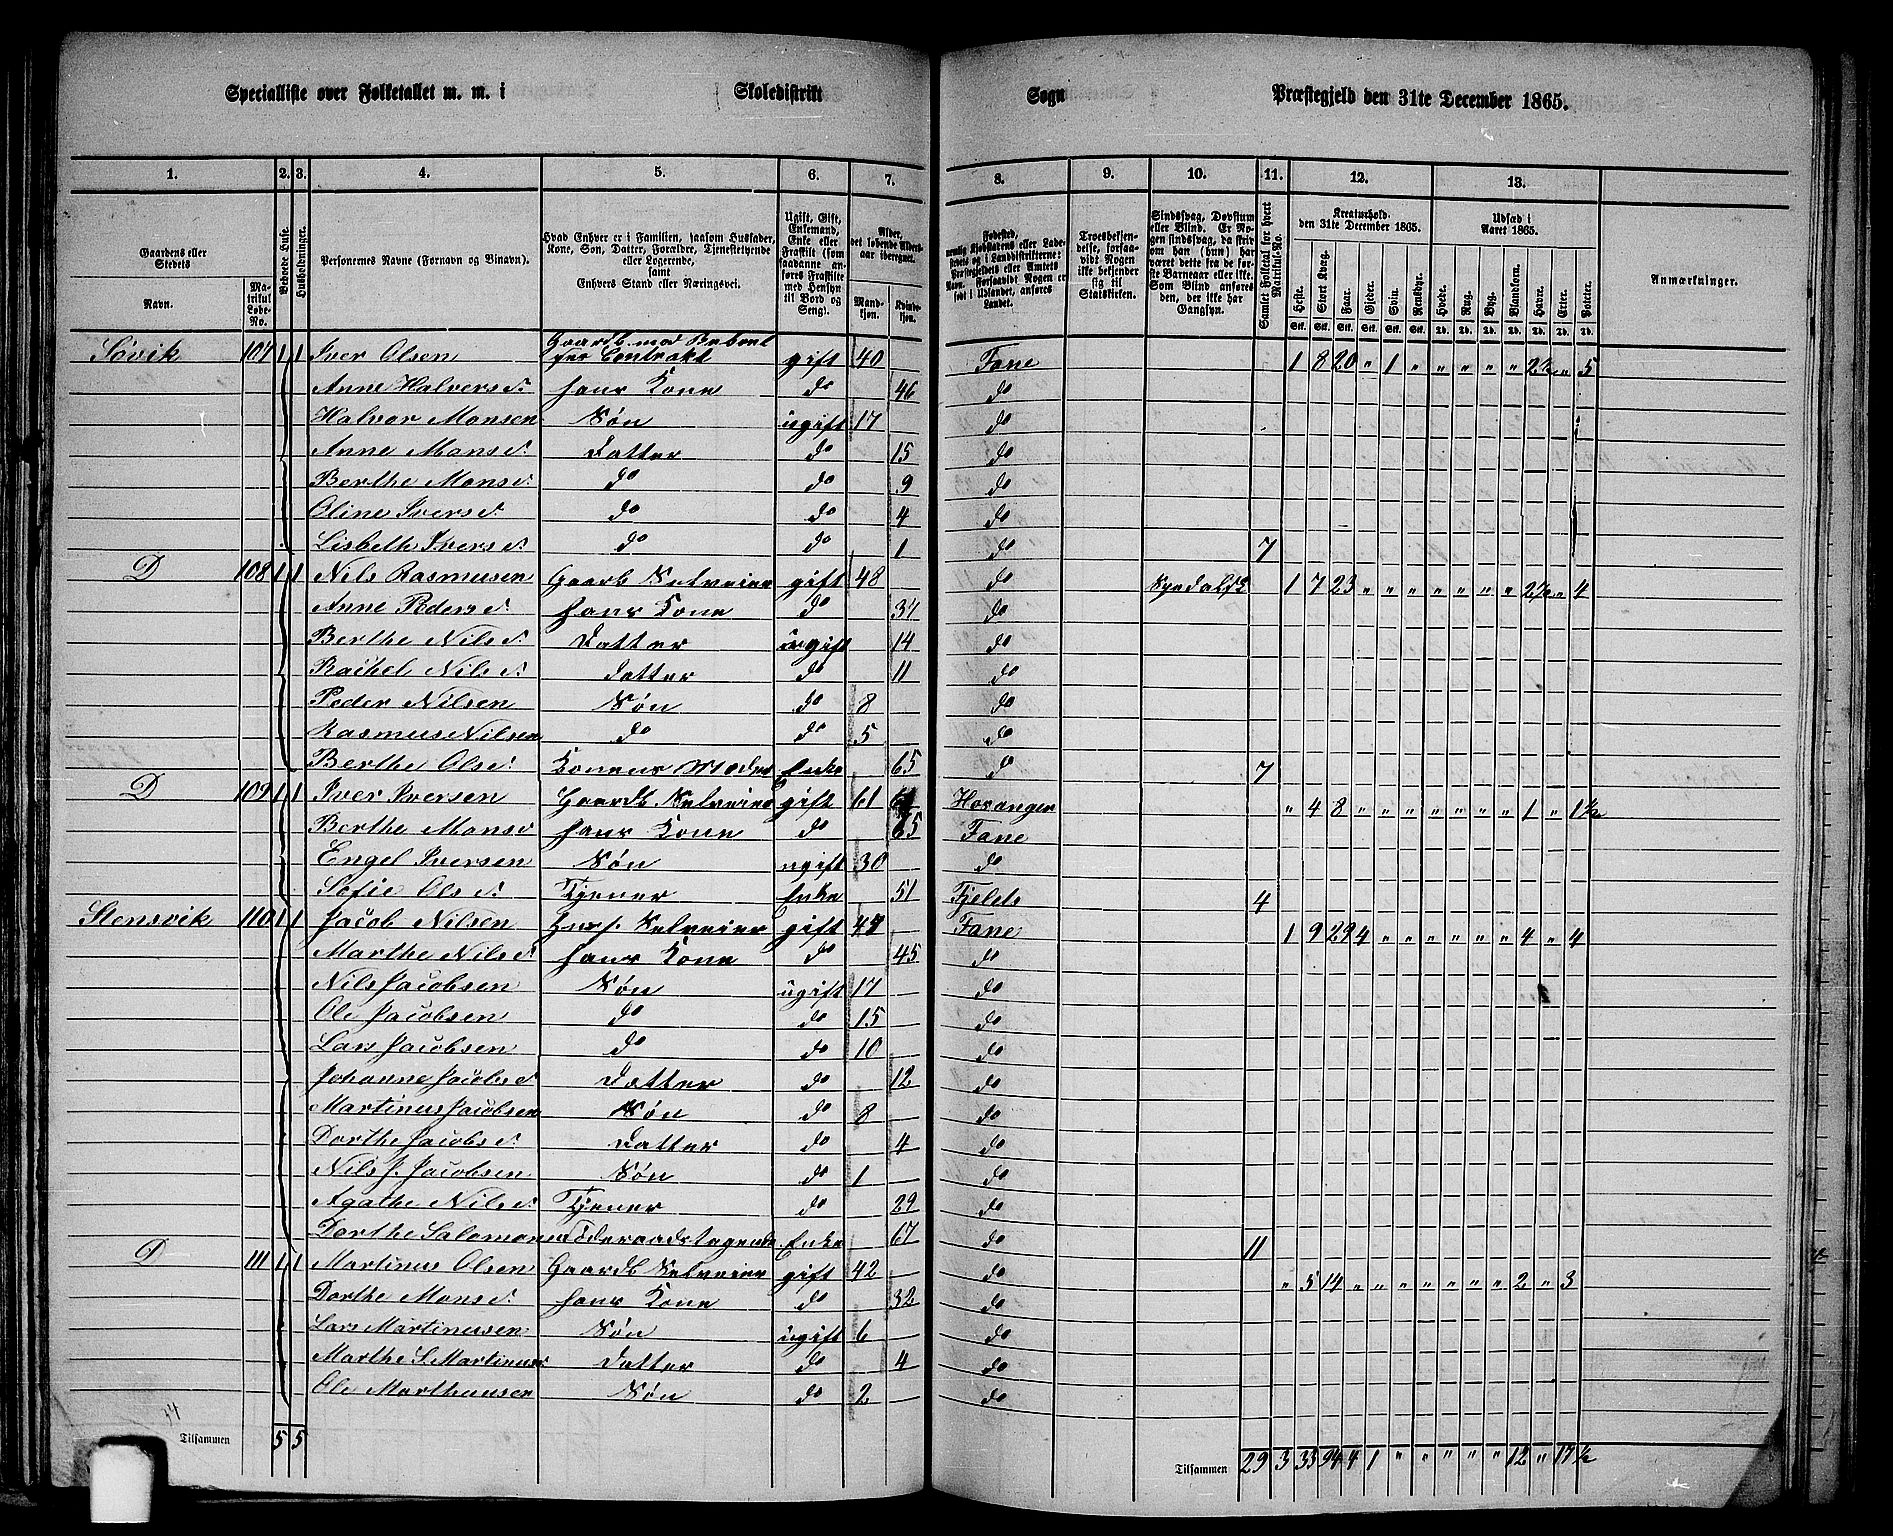 Specialliste over Folketallet m. m. i Skoledistrikt Sogn Præstegjeld den 31te December 1865.
1. 2. 3. 4. 5. 6. 7. 8. 9. 10. 11. 12. 13.
Gaardens eller Stedets
Navn.
Matrikul Løbe-No.
Beboede Huse.
Husholdninger.
Personernes Navne (Fornavn og Binavn).
Hvad Enhver er i Familien, saasom Husfader, Kone, Søn, Datter, Forældre, Tjenestetyende eller Logerende, samt Enhvers Stand eller Næringsvei.
Ugift, Gift, Enkemand, Enke eller Fraskilt (som saadanne anføres Fraskilte med Hensyn til Bord og Seng).
Alder, det løbende Aldersaar iberegnet.
Mandkjøn. Kvindekjøn.
Fødested,
Troesbekjendelse, forsaavidt Nogen ikke bekjender sig til Statskirken.
Sindssvag, Døvstum eller Blind. Er Nogen sindssvag, da skrives han (hun) har været dette fra de første Barneaar eller ikke. Som Blind opføres den, der ikke har Gangsyn.
Samlet Folketal for hvert Matrikul-No.
Kreaturhold den 31te December 1865.
Heste. Stort Kvæg. Faar. Gjeder. Svin. Rensdyr.
Udsæd i Aaret 1865.
Hvede. Rug. Byg. Blandkorn. Havre. Erter. Poteter.
Anmærkninger.
Søvik 107 1 1 Iver Olsen Gaardb. med per Contrakt gift 40 Fane 1 8 20 „ 1 „ „ „ „ „ 2½ „ 5
Anne Halversd. hans Kone do 46 do
Halvor Monsen Søn ugift 17 do
Anne Monsd. Datter do 15 do
Berthe Monsd. do do 9 do
Oline Iversd. do do 4 do
Lisbeth Iversd. do do 1 do 7
D 108 1 1 Nils Rasmusen Gaardb Selveier gift 48 do 1 7 23 „ „ „ „ „ „ „ 2½ „ 4
Anne Pedersd. hans Kone do 37 do
Berthe Nilsd. Datter ugift 14 do
Rachel Nilsd. Datter do 11 do
Peder Nilsen Søn do 8 do
Rasmus Nilsen do do 5 do
Berthe Olsd. Konens Moder Enke 65 do 7
D 109 1 1 Iver Iversen Gaardb. Selveier gift 61 Horanger „ 4 8 „ „ „ „ „ „ „ 1 „ 1½
Berthe Monsd hans Kone do 65 Fane
Engel Iversen Søn ugift 30 do
Sofie Olsd. Tjener Enke 51 Fjelds 4
Stensvik 110 1 1 Jacob Nilsen Selveier gift 47 Fane 1 9 29 4 „ „ „ „ „ „ 4 „ 4
Marthe Nilsd hans Kone do 45 do
Nils Jacobsen Søn ugift 17 do
Ole Jacobsen do do 15 do
Lars Jacobsen do do 10 do
Johanne Jacobsd Datter do 12 do
Martinus Jacobsen Søn do 8 do
Dorthe Jacobsd. Datter do 4 do
Nils J. Jacobsen Søn do 1 do
Agathe Nilsd. Tjener do 29 do
Dorthe Salomonsd Føderaadstagende Enke 67 do 11
D 111 1 1 Martinus Olsen Gaardb Selveier gift 42 do „ 5 14 „ „ „ „ „ „ „ 2 „ 3
Dorthe Monsd. hans Kone do 32 do
Lars Martinusen Søn ugift 6 do
Marthe S. Martinusd Datter do 4 do
Ole Marthausen Søn do 2 do
Tilsammen 5 5 Tilsammen 29 3 33 94 4 1 „ „ „ „ 12 „ 17½